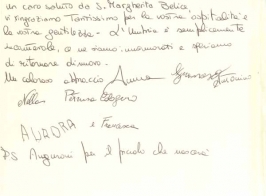 un caro saluto da S. Margherita Belice,
vi ringraziamo Tantissimo per la vostra ospitalità e
la vostra gentilezza. L'Umbria è semplicemente
e ne siamo innamorati e speriamo
di ritornare di nuovo.
Un caloroso abbraccio
AURORA e Francesca
PS Augurani per il piccolo che nascerà